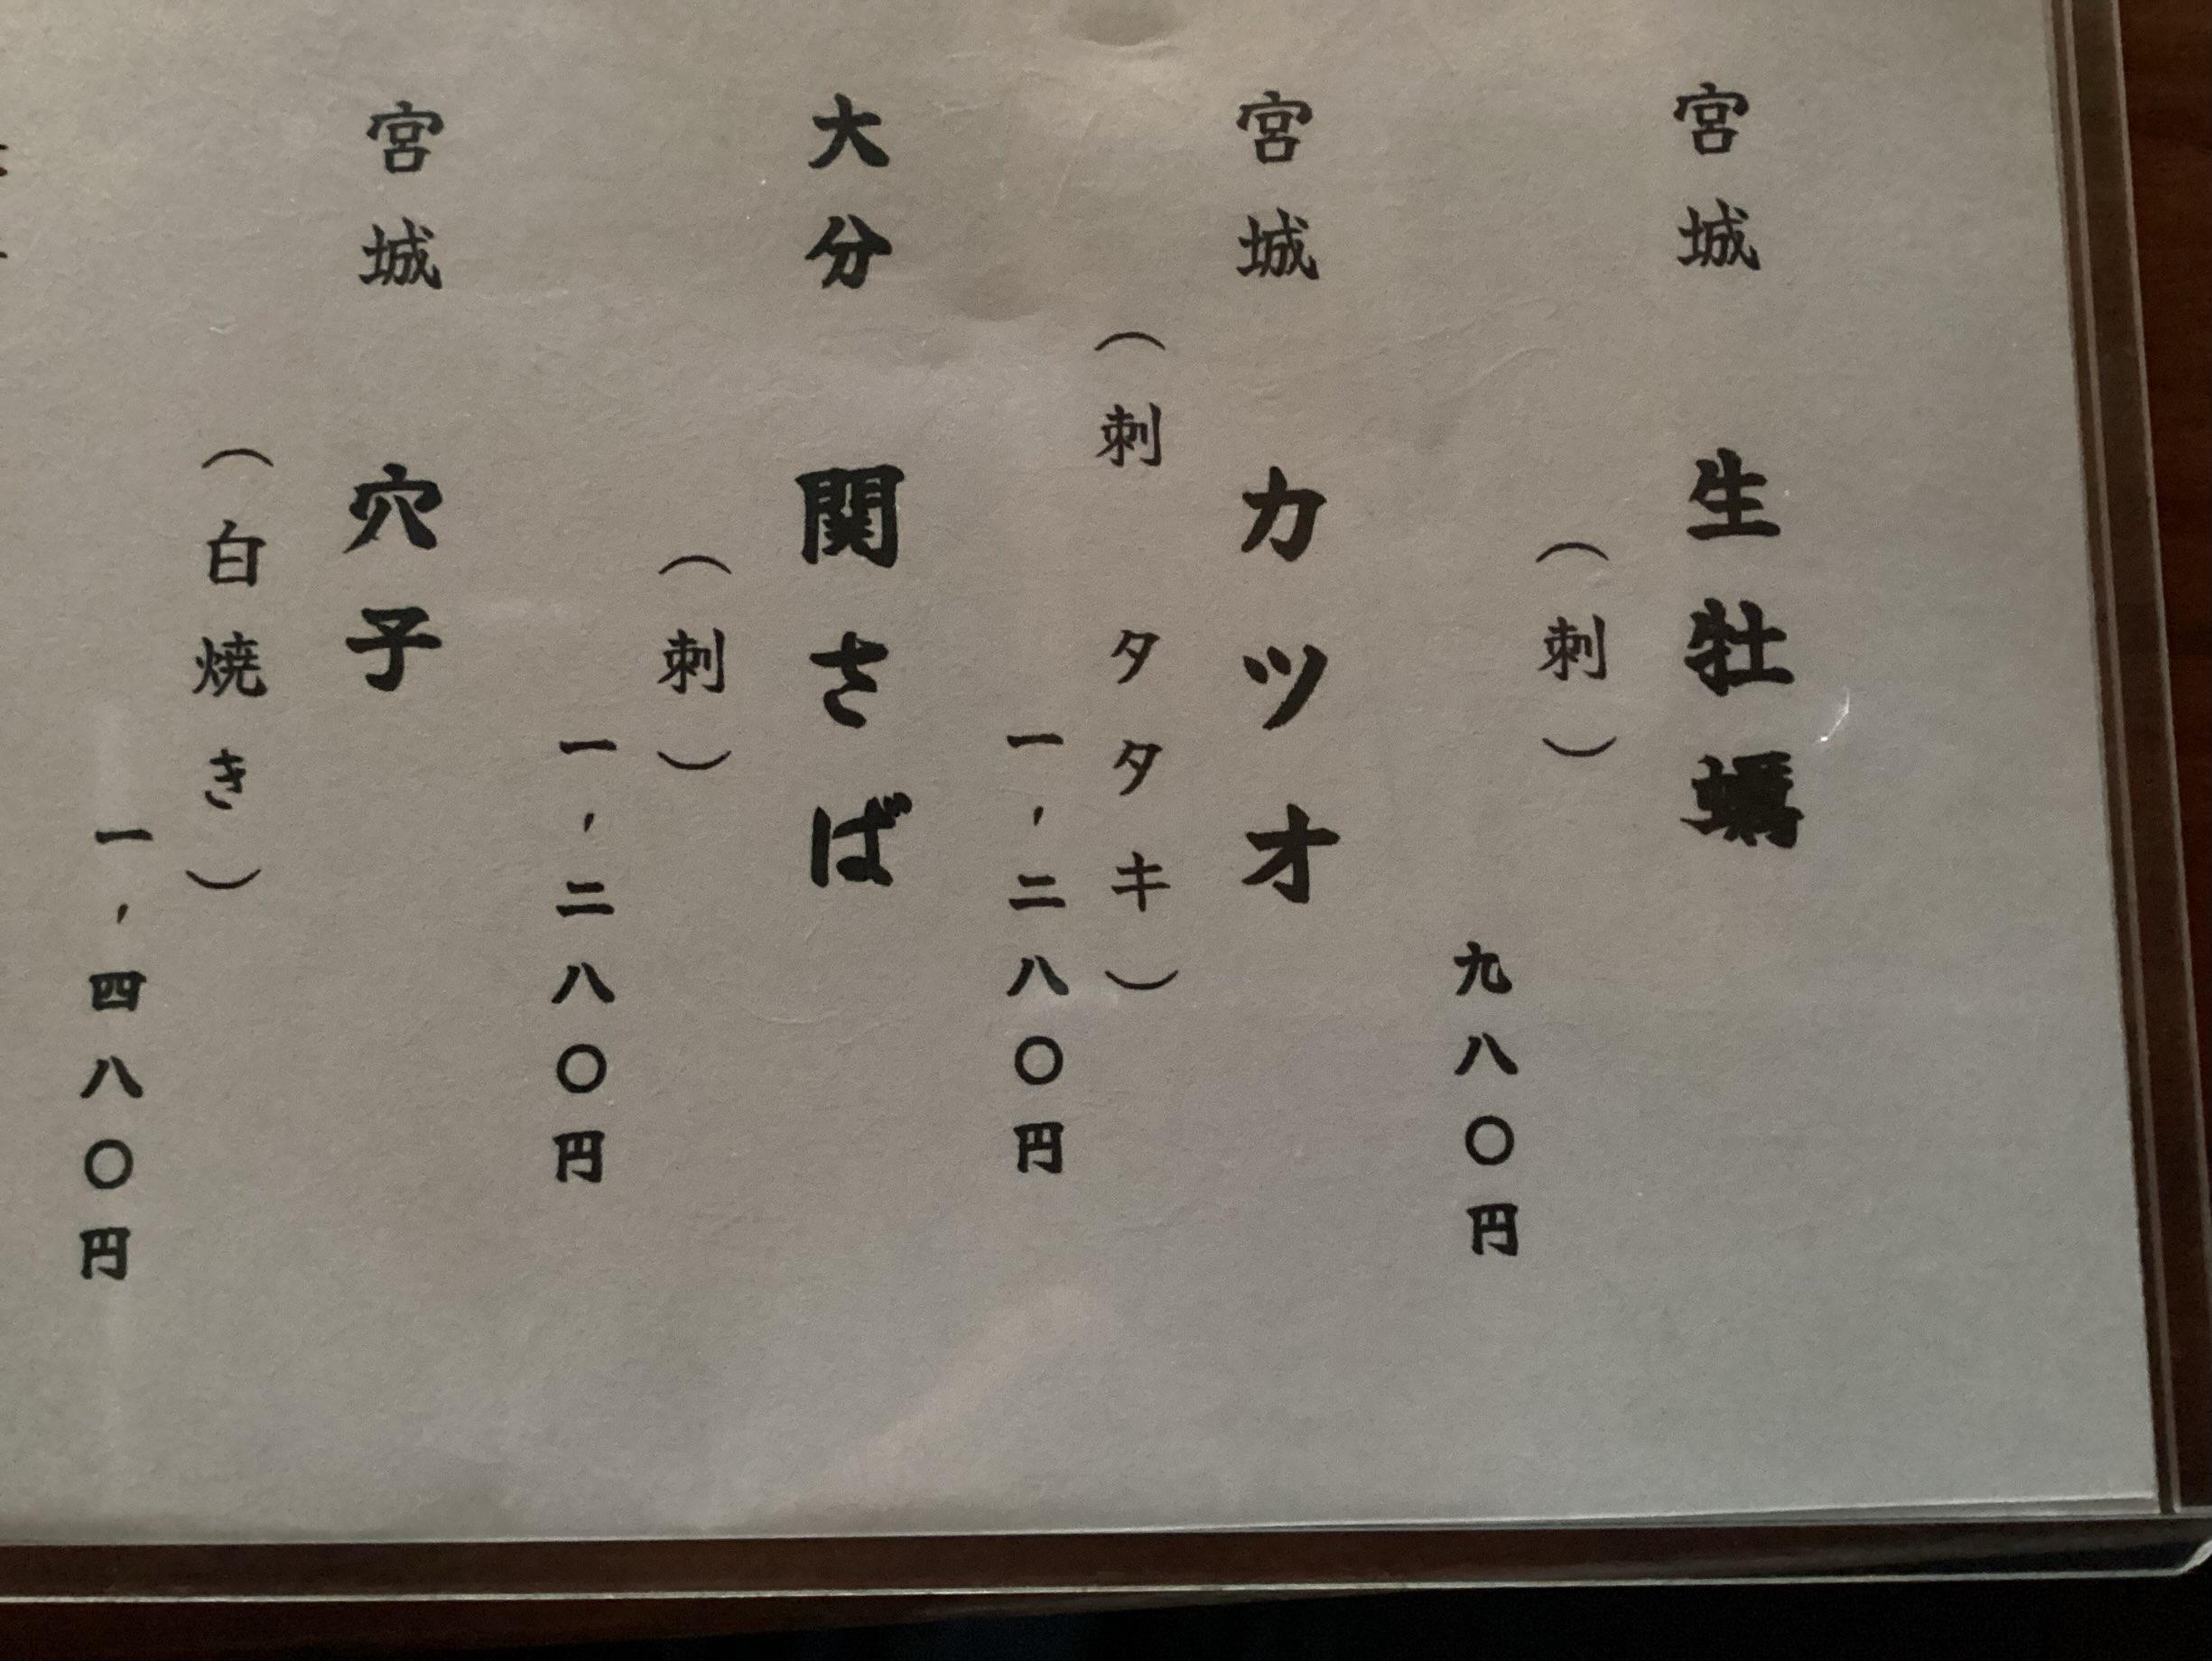 宮城 生牡蠣
（刺）
九八〇円
宮城 カツオ
（刺 タタキ）
一，二八〇円
大分 関さば
（刺）
一，二八〇円
宮城 穴子
（白焼き）
一，四八〇円